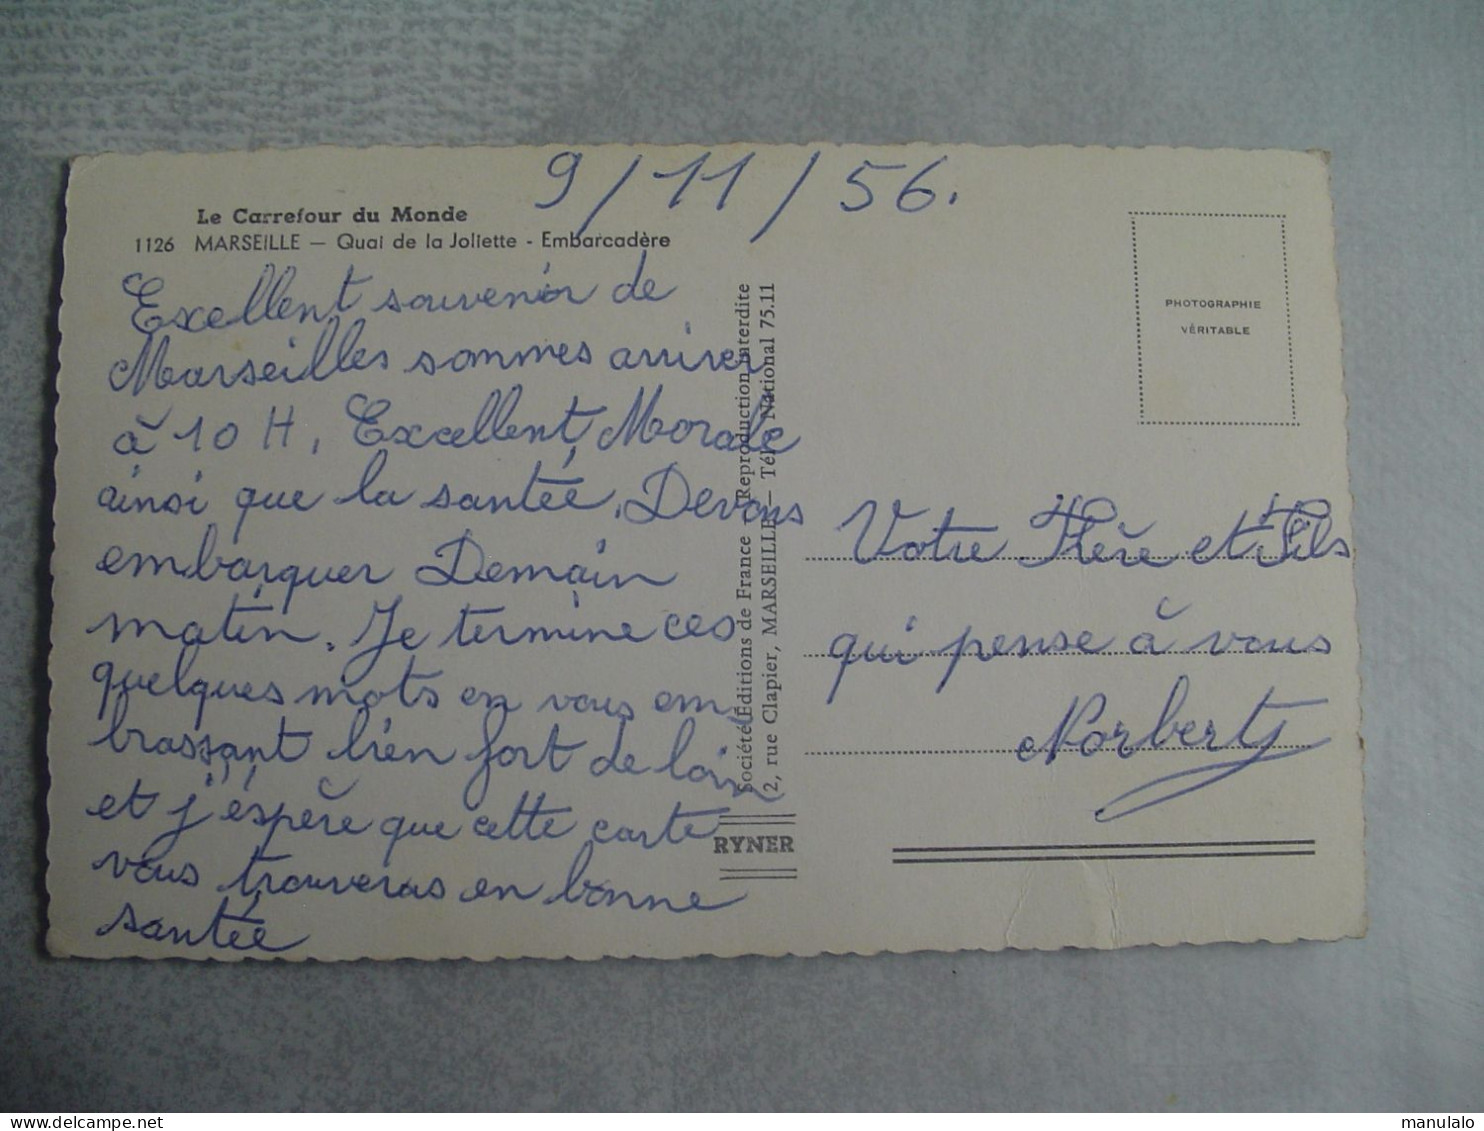 9/11/56.
Le Carrefour du Monde
1126 MARSEILLE — Quai de la Joliette - Embarcadère
Excellent souvenir de
Marseilles sommes arriver
à 10 H, Excellent Morale
ainsi que la santée, Devons
embarquer Demain
matin. Je termine ces
quelques mots en vous em
brassant bien fort de loin
et j'éspère que cette carte
vous trouveras en bonne
santée
Société Éditions de France - Reproduction interdite
2, rue Clapier, MARSEILLE — Tél. National 75.11
RYNER
PHOTOGRAPHIE
VÉRITABLE
Votre Frère et Fils
qui pense à vous
Norbert
www.delcampe.net
manulalo